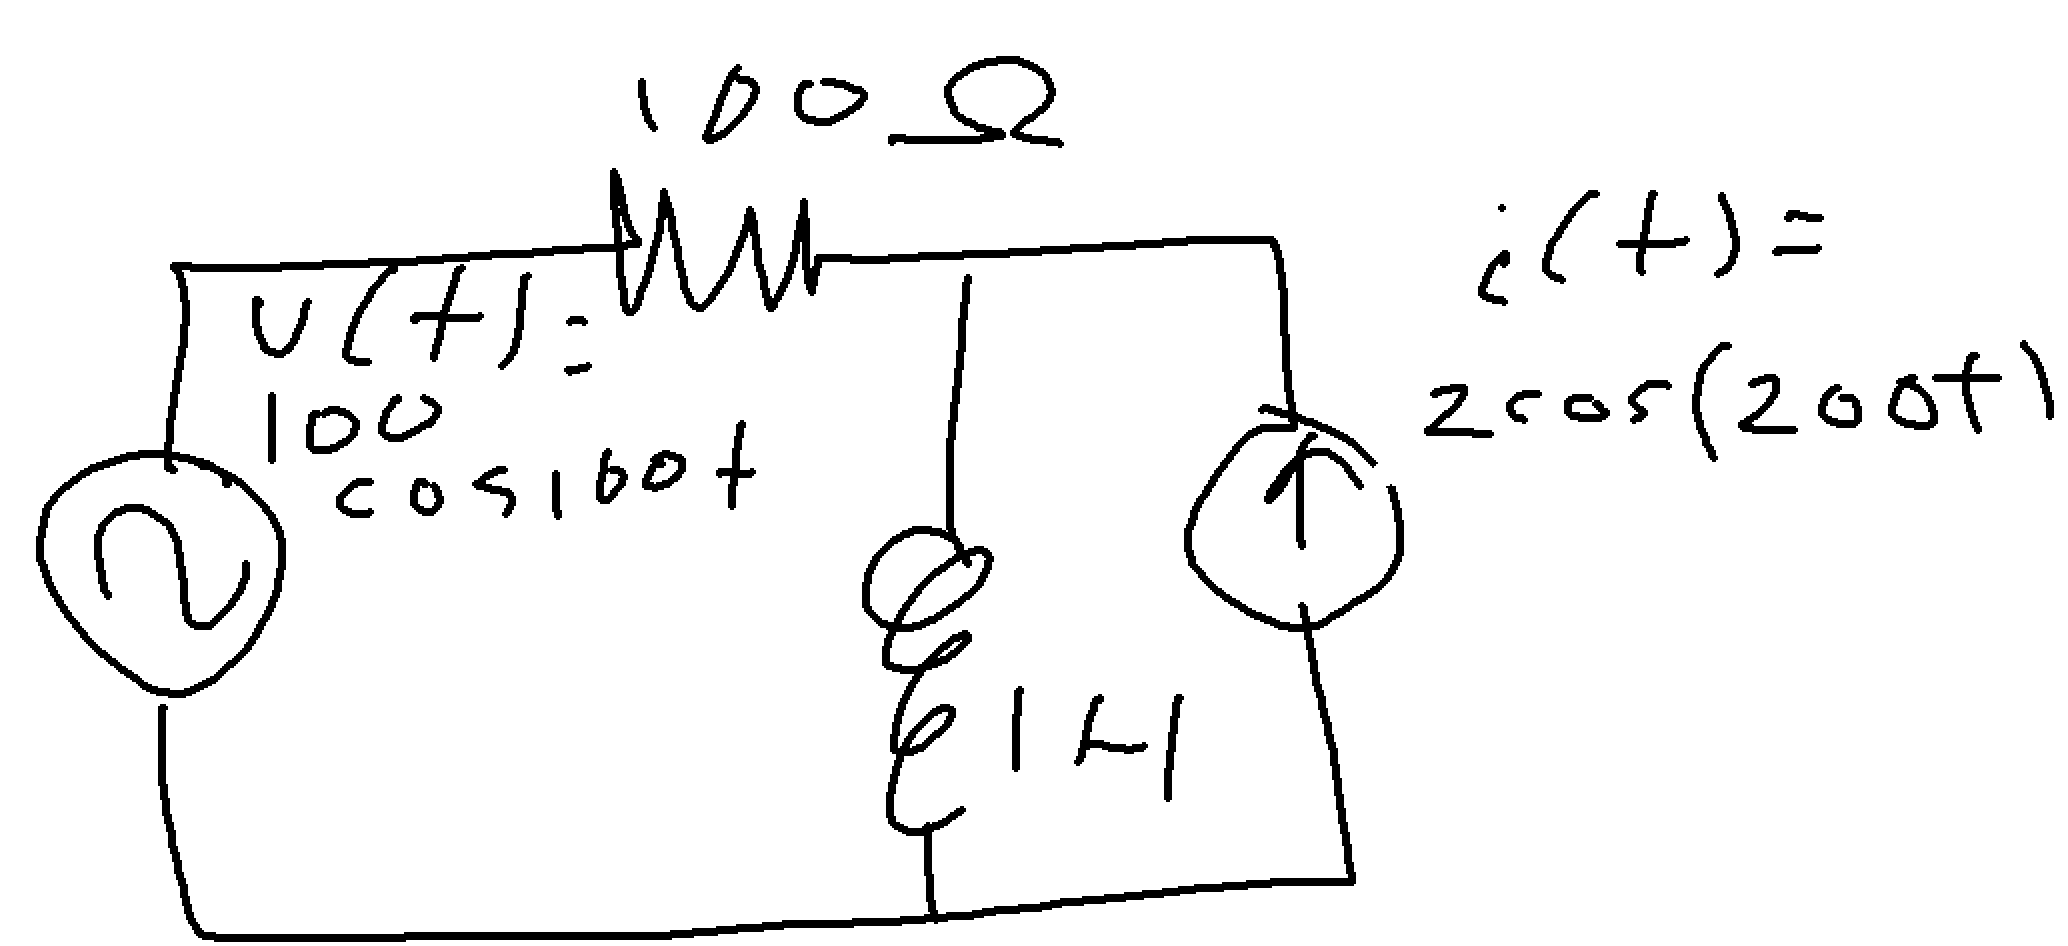 100Ω
v(t)=
100
cos100t
1H
i(t)=
2cos(200t)